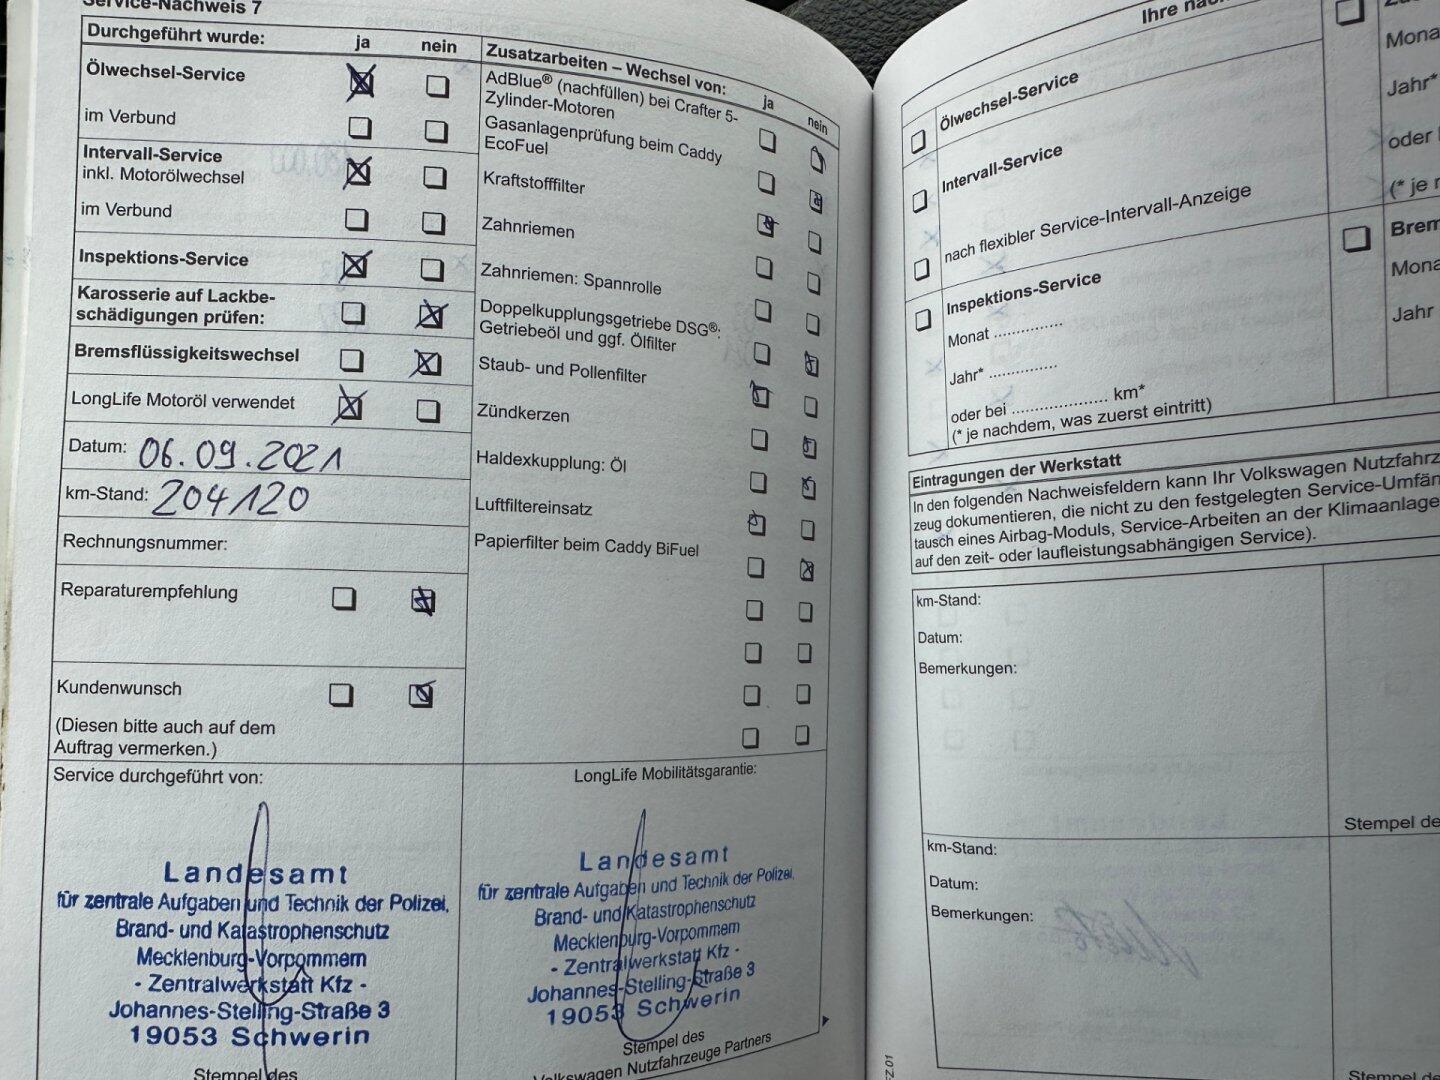 Service-Nachweis 7
Durchgeführt wurde: ja nein
Ölwechsel-Service
im Verbund
Intervall-Service
inkl. Motorölwechsel
im Verbund
Inspektions-Service
Karosserie auf Lackbe-
schädigungen prüfen:
Bremsflüssigkeitswechsel
LongLife Motoröl verwendet
Datum: 06.09.2021
km-Stand: 204120
Rechnungsnummer:
Reparaturempfehlung
Kundenwunsch
(Diesen bitte auch auf dem
Auftrag vermerken.)
Service durchgeführt von:
Landesamt
für zentrale Aufgaben und Technik der Polizei,
Brand- und Katastrophenschutz
Mecklenburg-Vorpommern
- Zentralwerkstatt Kfz -
Johannes-Stelling-Straße 3
19053 Schwerin
Stempel des
Zusatzarbeiten – Wechsel von: ja nein
AdBlue® (nachfüllen) bei Crafter 5-
Zylinder-Motoren
Gasanlagenprüfung beim Caddy
EcoFuel
Kraftstofffilter
Zahnriemen
Zahnriemen: Spannrolle
Doppelkupplungsgetriebe DSG®:
Getriebeöl und ggf. Ölfilter
Staub- und Pollenfilter
Zündkerzen
Haldexkupplung: Öl
Luftfiltereinsatz
Papierfilter beim Caddy BiFuel
LongLife Mobilitätsgarantie:
Landesamt
für zentrale Aufgaben und Technik der Polizei,
Brand- und Katastrophenschutz
Mecklenburg-Vorpommern
- Zentralwerkstatt Kfz -
Johannes-Stelling-Straße 3
19053 Schwerin
Stempel des
Volkswagen Nutzfahrzeuge Partners
Ihre
Ölwechsel-Service
Intervall-Service
nach flexibler Service-Intervall-Anzeige
Inspektions-Service
Monat ...............
Jahr* ...............
oder bei ..................... km*
(* je nachdem, was zuerst eintritt)
Jahr*
oder
(* je
Jahr
Eintragungen der Werkstatt
In den folgenden Nachweisfeldern kann Ihr Volkswagen
zeug dokumentieren, die nicht zu den festgelegten
tausch eines Airbag-Moduls, Service-Arbeiten an der Klimaanlage
auf den zeit- oder laufleistungsabhängigen Service).
km-Stand:
Datum:
Bemerkungen:
Stempel
km-Stand:
Datum:
Bemerkungen:
Stempel